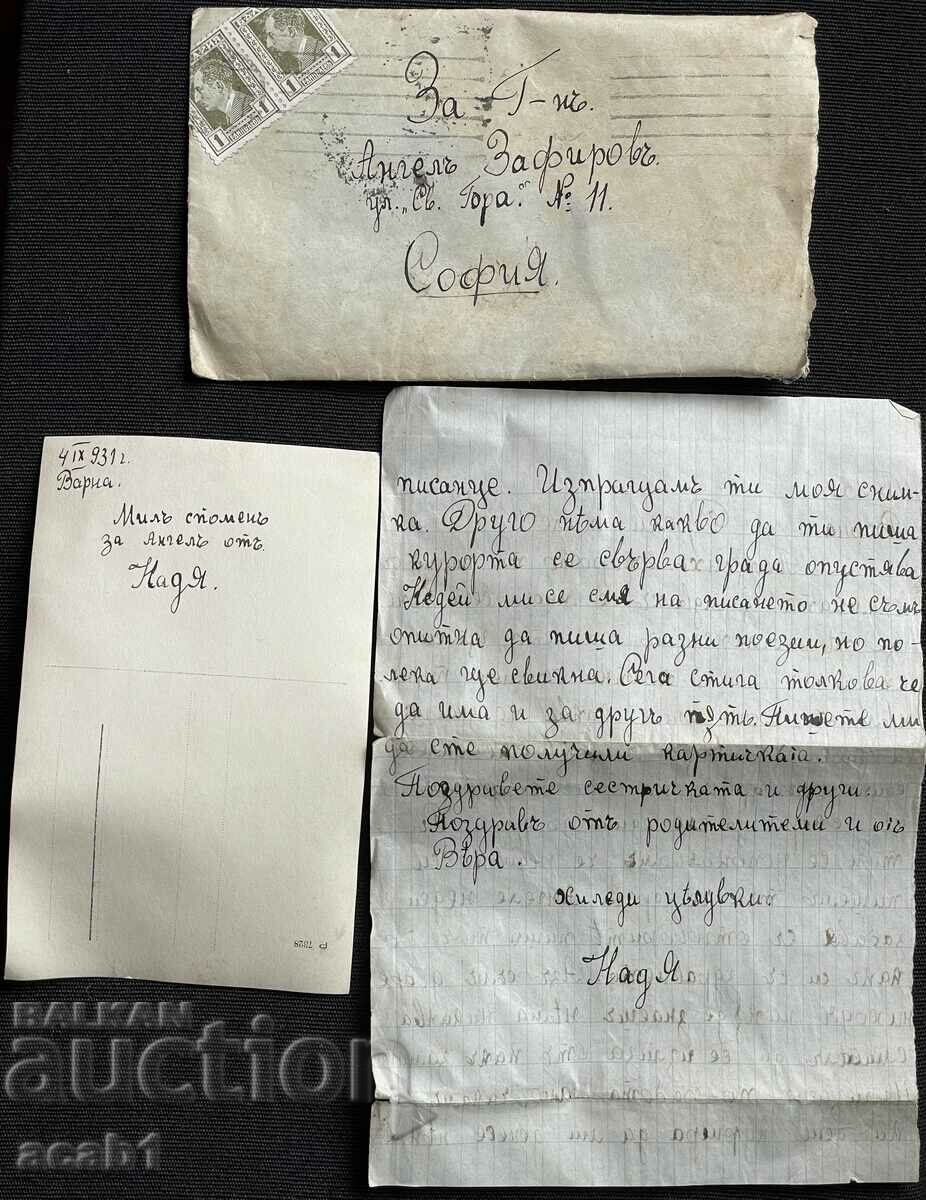 1
1
За Г-нъ.
Ангелъ Зафировъ.
ул. „Съ. Гора." № 11.
София.
4 IX 931 г.
Варна.
Милъ споменъ
за Ангелъ отъ.
Надя.
7828
писанце. Изпращамъ ти моя сним-
ка. Друго нѣма какво да ти пиша
курорта се свърва града опустява
Недей ми се смя на писането не съмъ
опитна да пиша разни поезии, но по-
лека ще свикна. Сега стига толкова че
да има и за другъ пѫть. Пишете ми
да сте получили картичката.
Поздравете сестричката и други.
Поздравъ отъ родителитеми и отъ
Вѣра.
хиледи цѣлувкит
Надя
BALKAN
auction
acab1